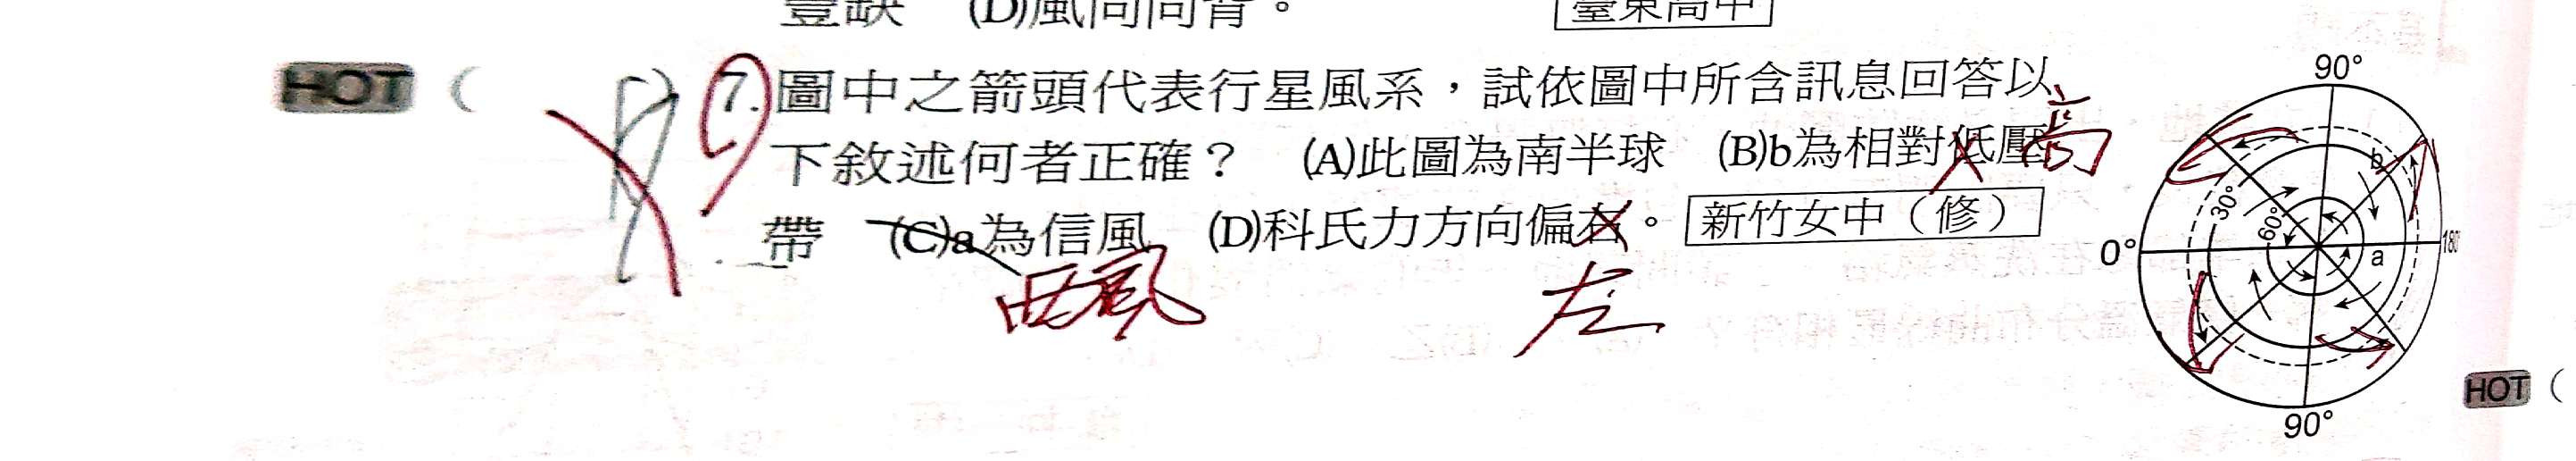 豐缺 (D)風向向背。 臺東高中
HOT ( 7.圖中之箭頭代表行星風系，試依圖中所含訊息回答以
下敘述何者正確？ (A)此圖為南半球 (B)b為相對低壓
高
帶 (C)a為信風 (D)科氏力方向偏右。 新竹女中（修）
西風 左
90°
b
30°
60°
0°
a
180
90°
HOT (